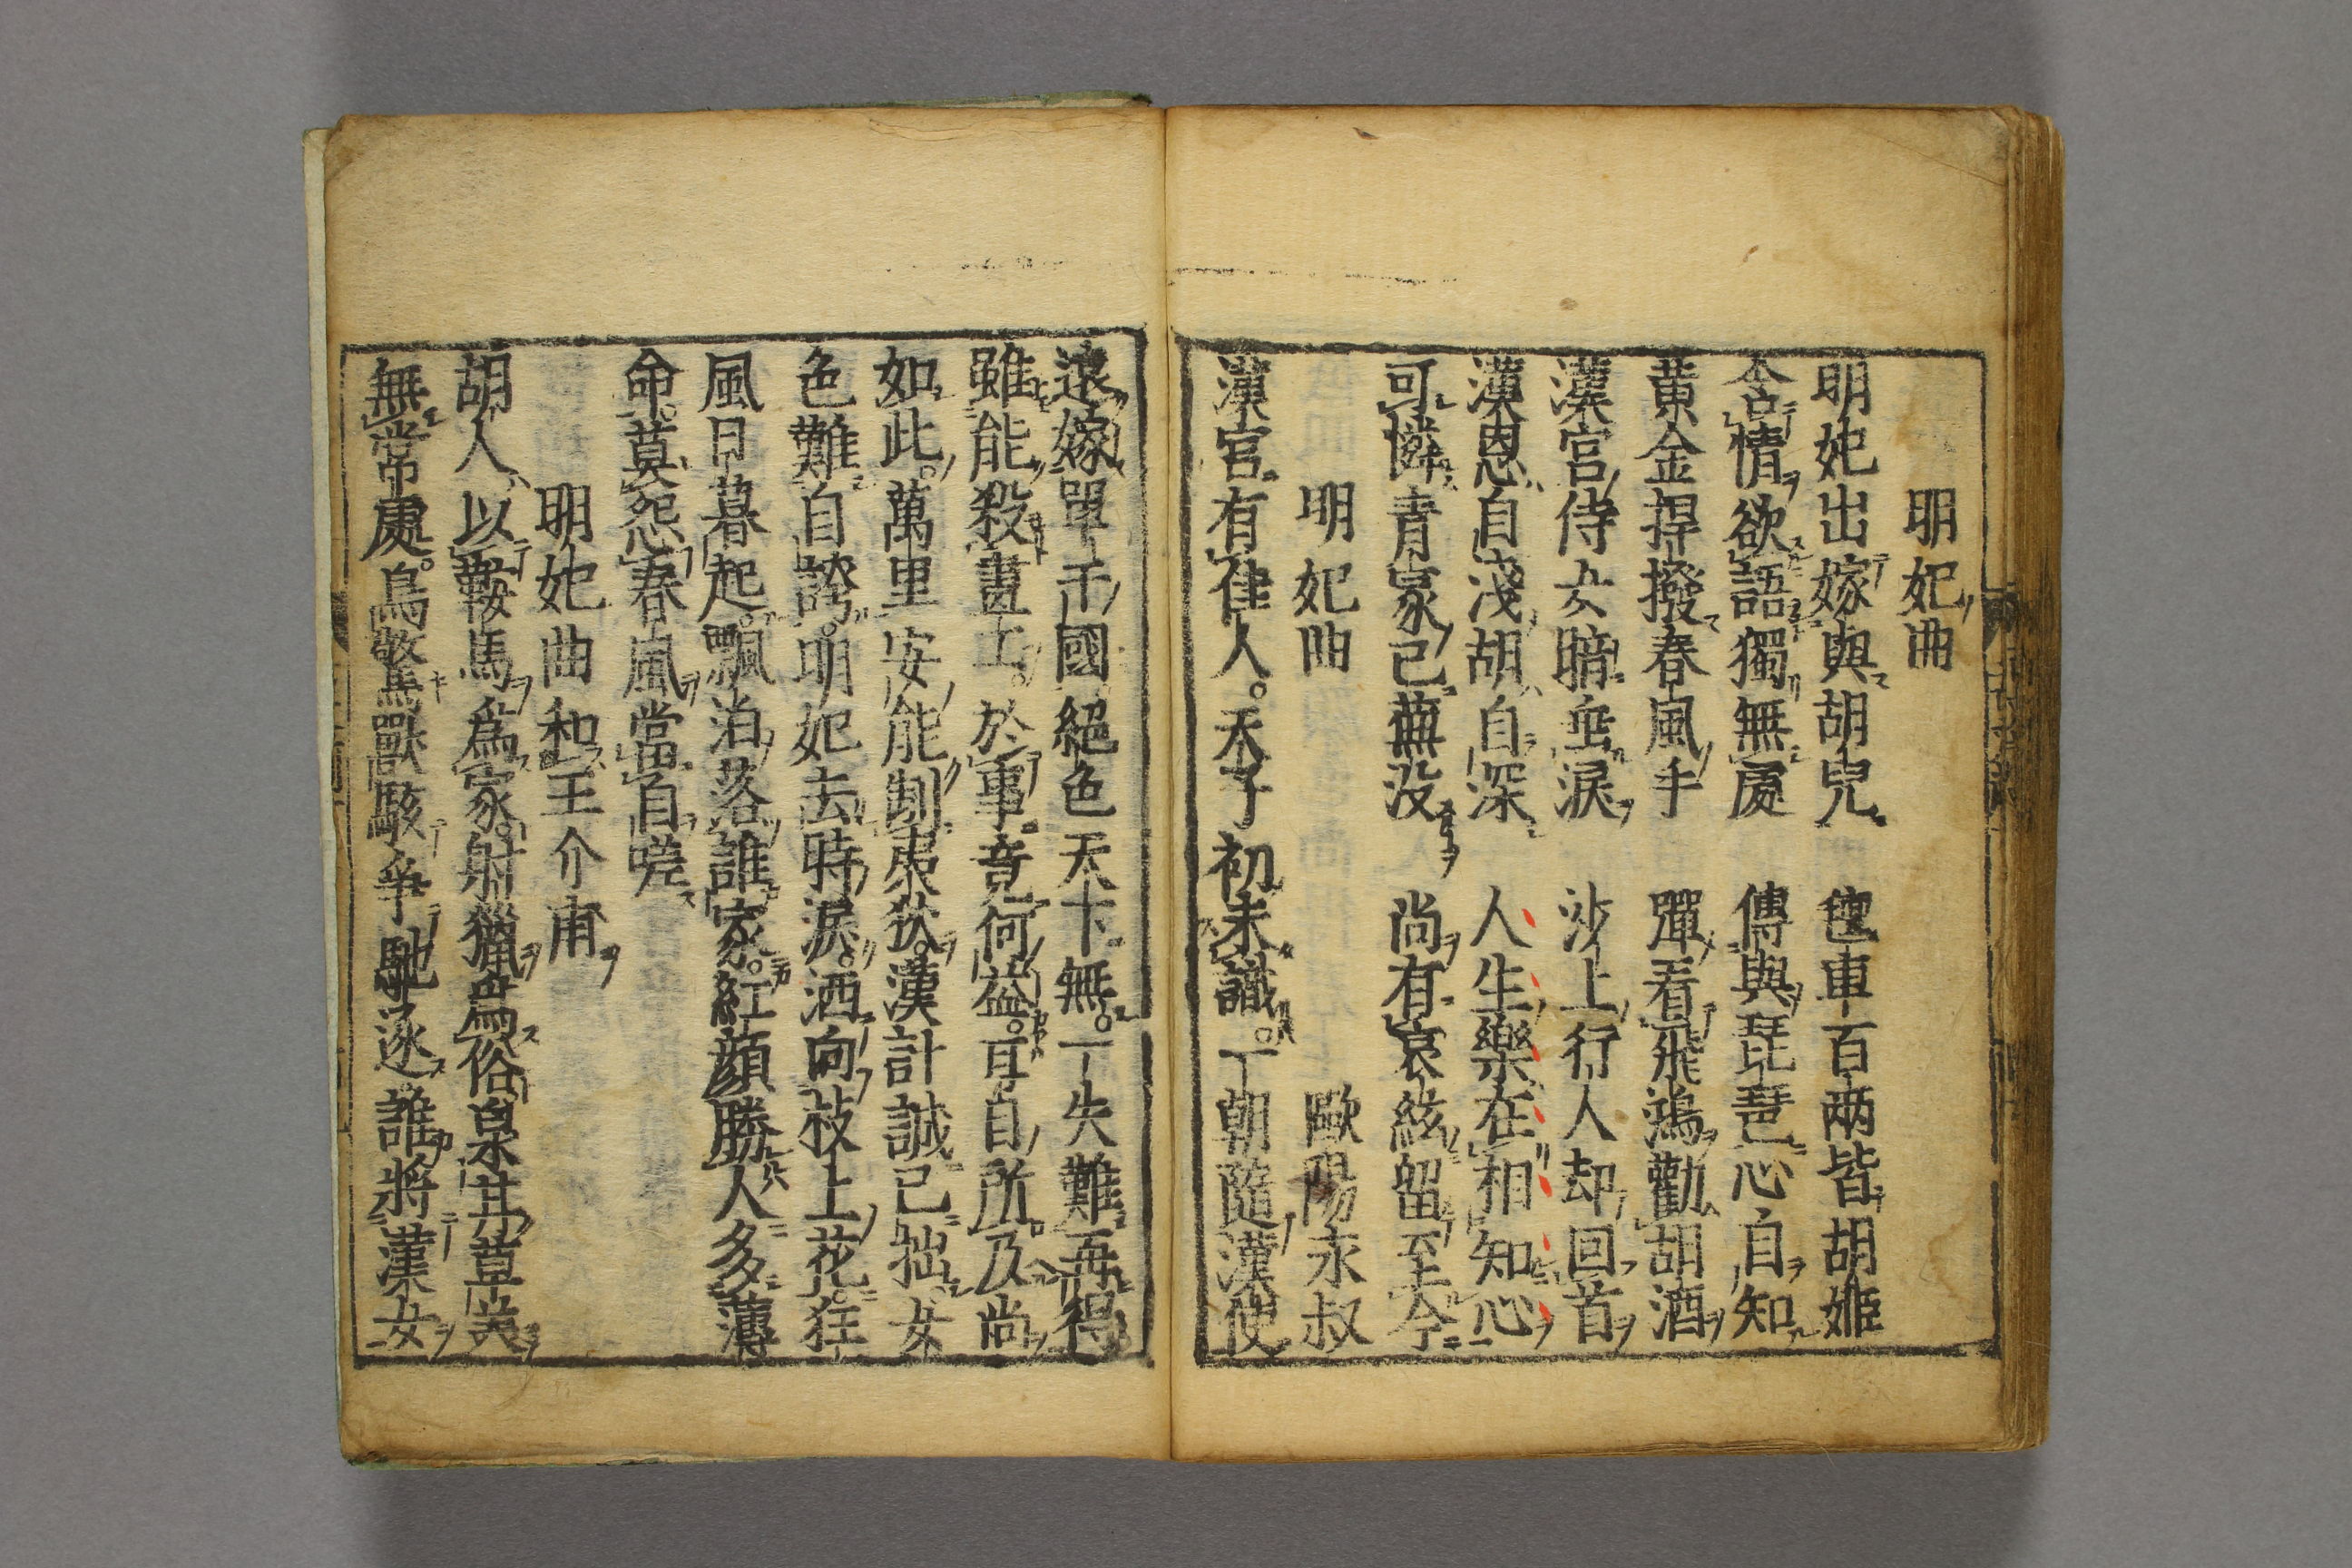 明妃曲
明妃出嫁與胡兒 氊車百兩皆胡姬
含情欲語獨無處 傳與琵琶心自知
黄金捍撥春風手 彈看飛鴻勸胡酒
漢宮侍女暗垂淚 沙上行人却回首
漢恩自淺胡自深 人生樂在相知心
可憐青冢已蕪没 尚有哀絃留至今
明妃曲 歐陽永叔
漢宮有佳人。天子初未識。一朝隨漢使
遠嫁單于國絕色天下無。一失難再得
雖能殺畫工。於事竟何益。耳目所及尚
如此。萬里安能制夷狄。漢計誠已拙。女
色難自誇。明妃去時淚。洒向枝上花。狂
風日暮起。飄泊落誰家。紅顔勝人多薄
命。莫怨春風當自嗟
明妃曲和王介甫
胡人以鞍馬爲家。射獵爲俗泉甘草美
無常處。鳥驚獸駭爭馳逐誰將漢女